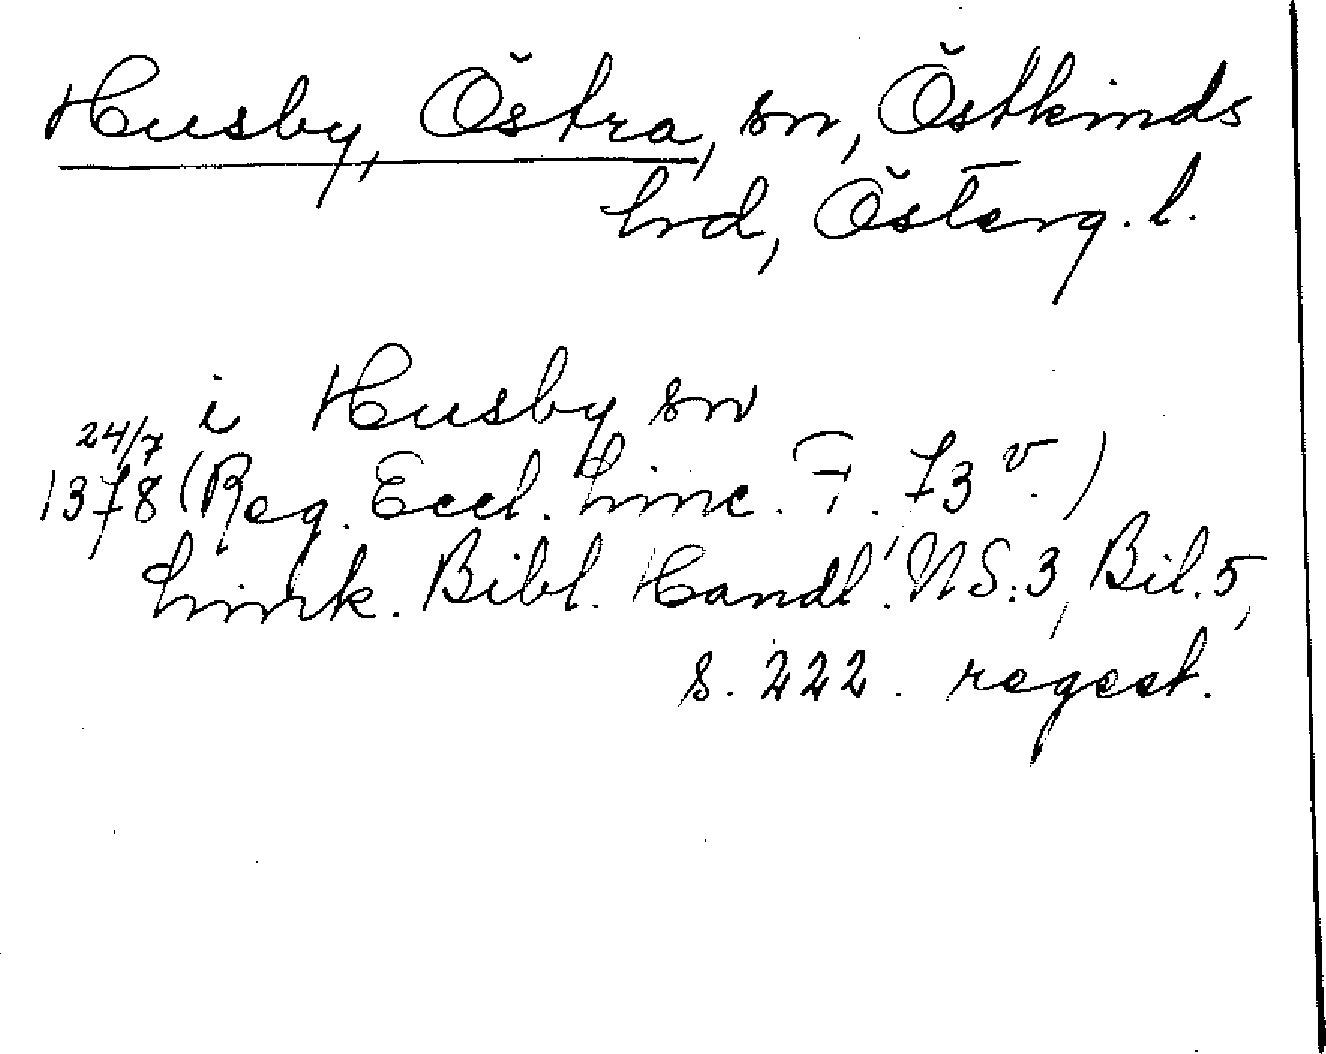 Husby, Östra, sn, Östkinds
hrd, Österg. l.
i Husby sn
24/7
1378 (Reg. Eccl. Linc. F. 73 v.)
Link. Bibl. Handl. NS. 3, Bil. 5,
s. 222. regest.